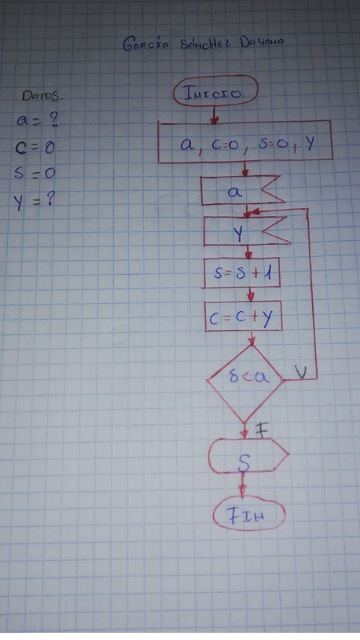 García Sánchez Dayana
Datos.
a = ?
c = 0
s = 0
y = ?
Inicio
a, c=0, s=0, y
a
y
s = s + 1
c = c + y
s < a
V
F
S
Fin